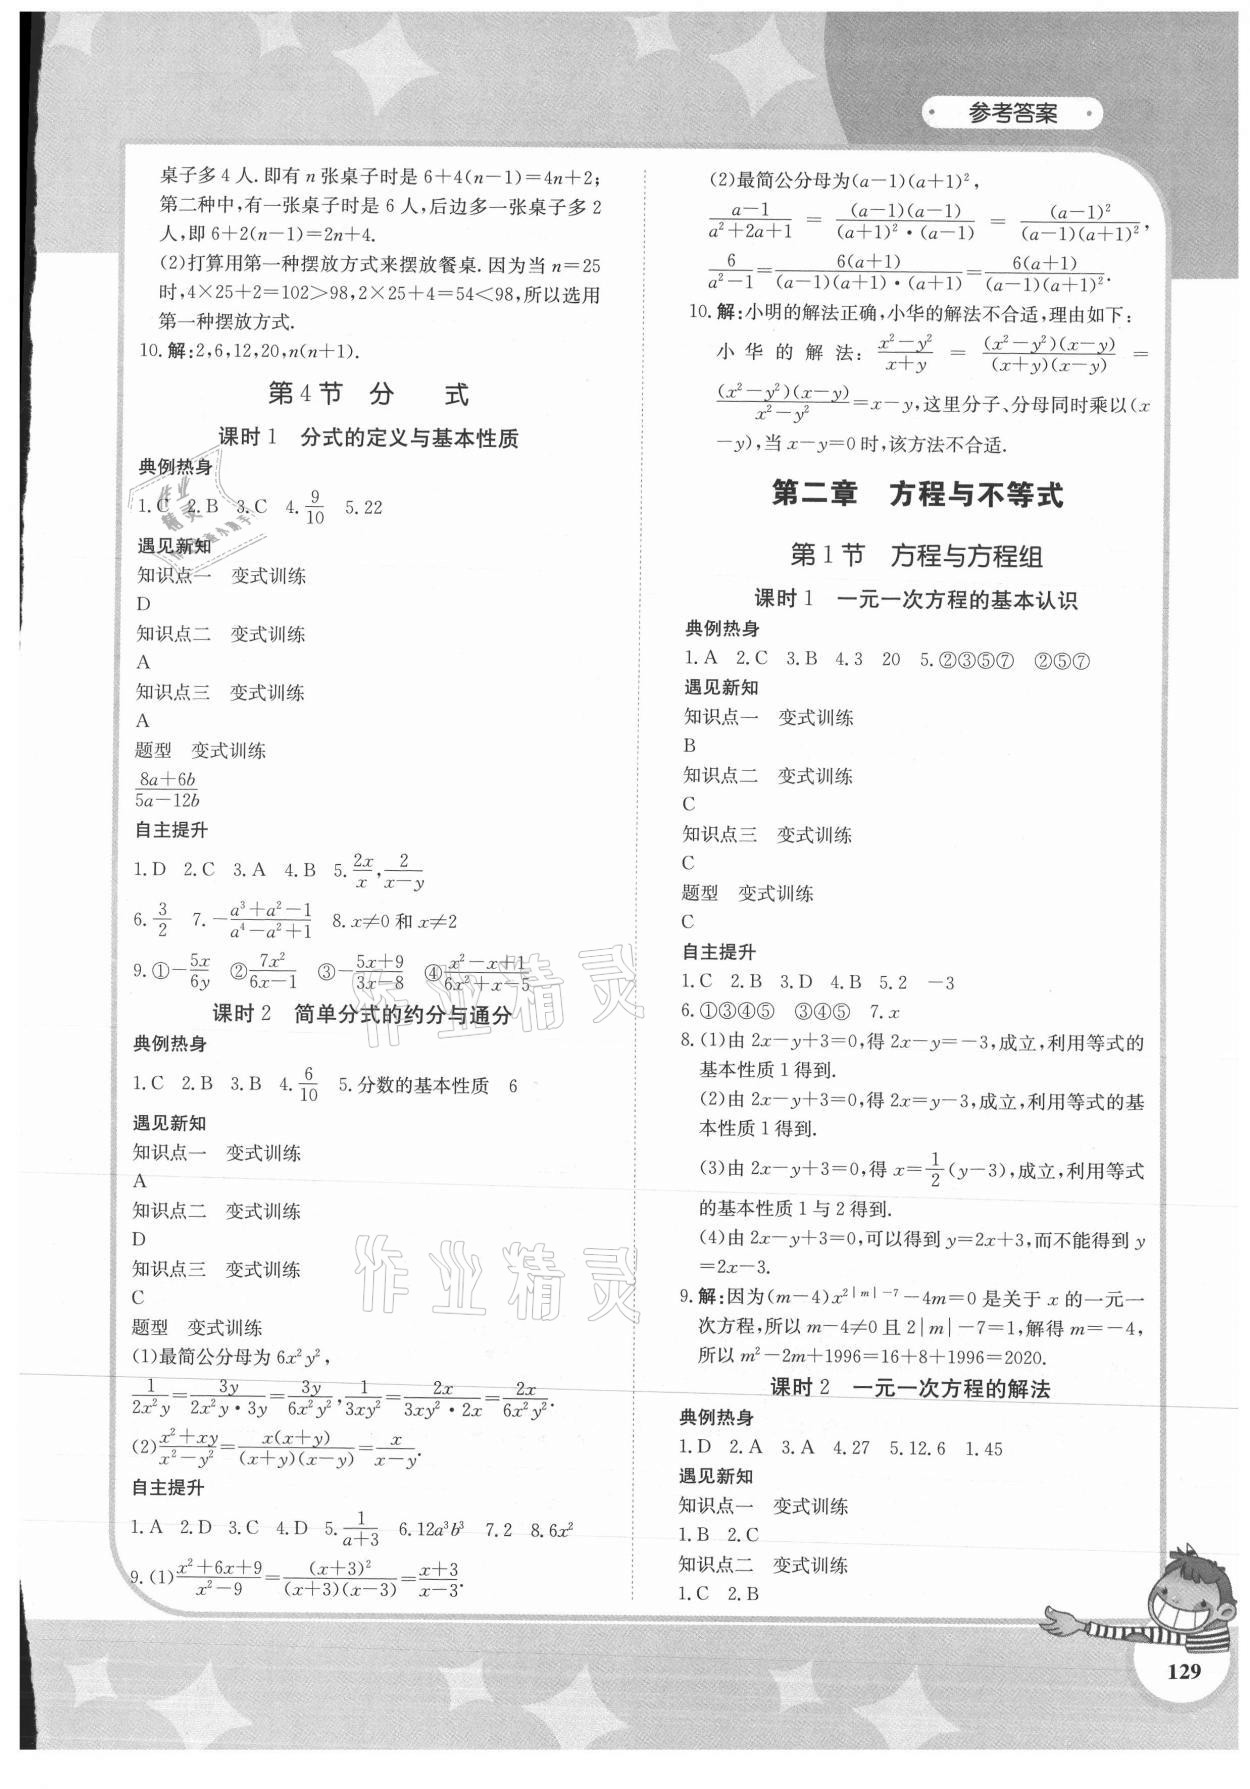 参考答案
桌子多4人.即有n张桌子时是6+4(n-1)=4n+2;
第二种中,有一张桌子时是6人,后边多一张桌子多2
人,即6+2(n-1)=2n+4.
(2)打算用第一种摆放方式来摆放餐桌.因为当n=25
时,4×25+2=102>98,2×25+4=54<98,所以选用
第一种摆放方式.
10.解:2,6,12,20,n(n+1).
第4节 分 式
课时1 分式的定义与基本性质
典例热身
1.C 2.B 3.C 4.9/10 5.22
遇见新知
知识点一 变式训练
D
知识点二 变式训练
A
知识点三 变式训练
A
题型 变式训练
(8a+6b)/(5a-12b)
自主提升
1.D 2.C 3.A 4.B 5.2x/x,2/(x-y)
6.3/2 7.-(a³+a²-1)/(a⁴-a²+1) 8.x≠0和x≠2
9.①-5x/6y ②7x²/(6x-1) ③-(5x+9)/(3x-8) ④(x²-x+1)/(6x²+x-5)
课时2 简单分式的约分与通分
典例热身
1.C 2.B 3.B 4.6/10 5.分数的基本性质 6
遇见新知
知识点一 变式训练
A
知识点二 变式训练
D
知识点三 变式训练
C
题型 变式训练
(1)最简公分母为6x²y²,
1/(2x²y)=3y/(2x²y·3y)=3y/(6x²y²),1/(3xy²)=2x/(3xy²·2x)=2x/(6x²y²).
(2)(x²+xy)/(x²-y²)=x(x+y)/((x+y)(x-y))=x/(x-y).
自主提升
1.A 2.D 3.C 4.D 5.1/(a+3) 6.12a³b³ 7.2 8.6x²
9.(1)(x²+6x+9)/(x²-9)=(x+3)²/((x+3)(x-3))=(x+3)/(x-3).
(2)最简公分母为(a-1)(a+1)²,
(a-1)/(a²+2a+1)=(a-1)(a-1)/((a+1)²·(a-1))=(a-1)²/((a-1)(a+1)²),
6/(a²-1)=6(a+1)/((a-1)(a+1)·(a+1))=6(a+1)/((a-1)(a+1)²).
10.解:小明的解法正确,小华的解法不合适,理由如下:
小华的解法:(x²-y²)/(x+y)=(x²-y²)(x-y)/((x+y)(x-y))=
(x²-y²)(x-y)/(x²-y²)=x-y,这里分子、分母同时乘以(x
-y),当x-y=0时,该方法不合适.
第二章 方程与不等式
第1节 方程与方程组
课时1 一元一次方程的基本认识
典例热身
1.A 2.C 3.B 4.3 20 5.②③⑤⑦ ②⑤⑦
遇见新知
知识点一 变式训练
B
知识点二 变式训练
C
知识点三 变式训练
C
题型 变式训练
C
自主提升
1.C 2.B 3.D 4.B 5.2 -3
6.①③④⑤ ③④⑤ 7.x
8.(1)由2x-y+3=0,得2x-y=-3,成立,利用等式的
基本性质1得到.
(2)由2x-y+3=0,得2x=y-3,成立,利用等式的基
本性质1得到.
(3)由2x-y+3=0,得x=1/2(y-3),成立,利用等式
的基本性质1与2得到.
(4)由2x-y+3=0,可以得到y=2x+3,而不能得到y
=2x-3.
9.解:因为(m-4)x^(2|m|-7)-4m=0是关于x的一元一
次方程,所以m-4≠0且2|m|-7=1,解得m=-4,
所以m²-2m+1996=16+8+1996=2020.
课时2 一元一次方程的解法
典例热身
1.D 2.A 3.A 4.27 5.12.6 1.45
遇见新知
知识点一 变式训练
1.B 2.C
知识点二 变式训练
1.C 2.B
129
作业精灵
作业精灵
作业
精灵